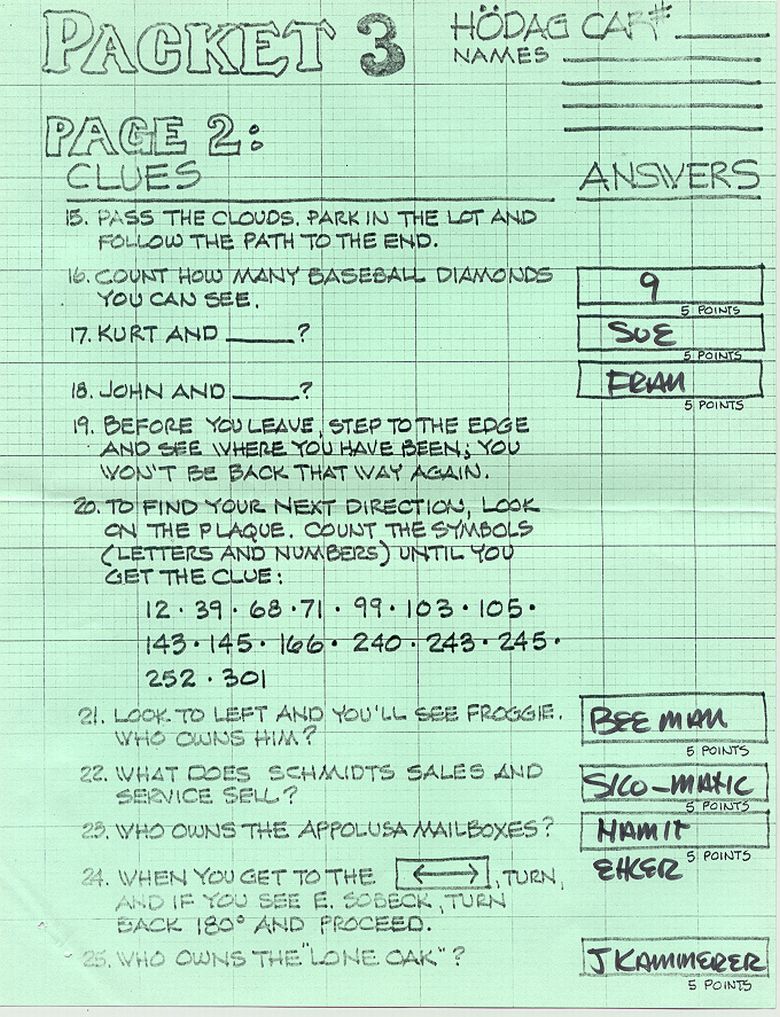 PACKET 3
HÖDAG CAR#
NAMES
PAGE 2:
CLUES
ANSWERS
15. PASS THE CLOUDS. PARK IN THE LOT AND
FOLLOW THE PATH TO THE END.
16. COUNT HOW MANY BASEBALL DIAMONDS
YOU CAN SEE.
9
5 POINTS
17. KURT AND ______?
SUE
5 POINTS
18. JOHN AND ______?
FRAN
5 POINTS
19. BEFORE YOU LEAVE, STEP TO THE EDGE
AND SEE WHERE YOU HAVE BEEN; YOU
WON'T BE BACK THAT WAY AGAIN.
20. TO FIND YOUR NEXT DIRECTION, LOOK
ON THE PLAQUE. COUNT THE SYMBOLS
(LETTERS AND NUMBERS) UNTIL YOU
GET THE CLUE:
12 · 39 · 68 · 71 · 99 · 103 · 105 ·
143 · 145 · 166 · 240 · 243 · 245 ·
252 · 301
21. LOOK TO LEFT AND YOU'LL SEE FROGGIE.
WHO OWNS HIM?
BEEMAN
5 POINTS
22. WHAT DOES SCHMIDTS SALES AND
SERVICE SELL?
SICO-MATIC
5 POINTS
23. WHO OWNS THE APPOLUSA MAILBOXES?
HAMIT
EHCER
5 POINTS
24. WHEN YOU GET TO THE ⟷, TURN,
AND IF YOU SEE E. SOBECK, TURN
BACK 180° AND PROCEED.
25. WHO OWNS THE "LONE OAK"?
J KAMMERER
5 POINTS